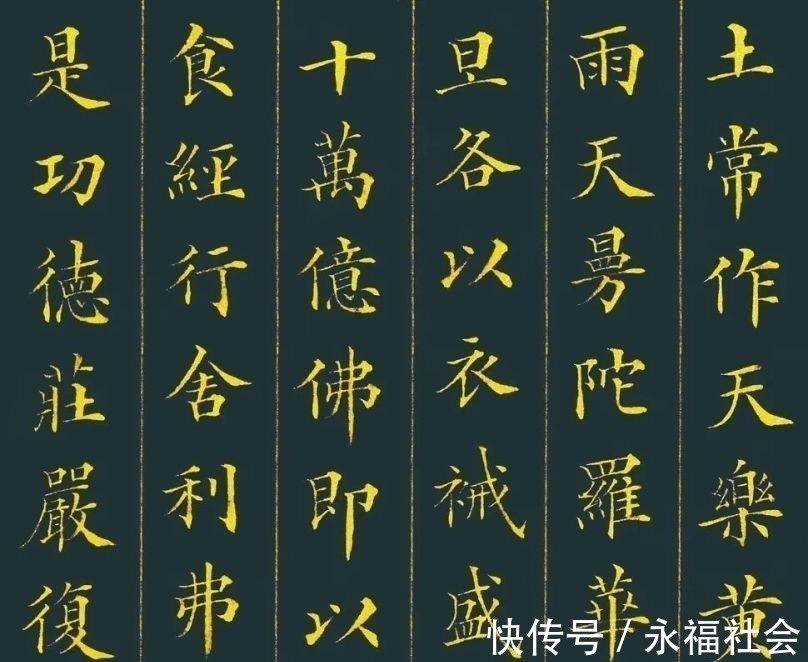 土常作天樂黄
雨天曼陀羅華
旦各以衣裓盛
十萬億佛即以
食經行舍利弗
是功徳莊嚴復
快传号 / 永福社会